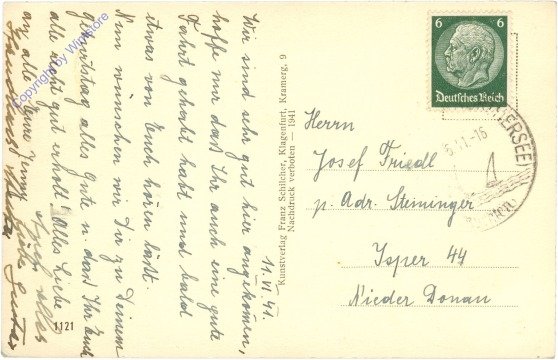 11.VI.41
Wir sind sehr gut hier angekommen,
hoffe nur dass Ihr auch eine gute
Fahrt gehabt habt und bald
etwas von Euch hören lässt.
Nun wünschen wir Dir zu Deinem
Geburtstag alles Gute u. dass Ihr Euch
alle recht gut erholt! Alles Liebe
an alle Eure Jenny
1121
Kunstverlag Franz Schilcher, Klagenfurt, Kramerg. 9
Nachdruck verboten — 1941
6 6
Deutsches Reich
ERSEE
Herrn
Josef Friedl
p. Adr. Steininger
Isper 44
Nieder Donau
Copyright by Winstore